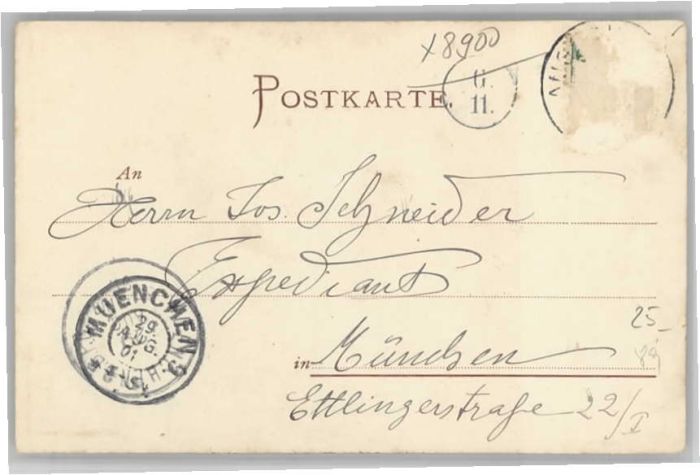 x8900
POSTKARTE.
6.
11.
An
Herrn Jos. Schneider
Expediant
MUENCHEN 9
29
AUG.
01
in München
25-
Ettlingerstraße 22/I